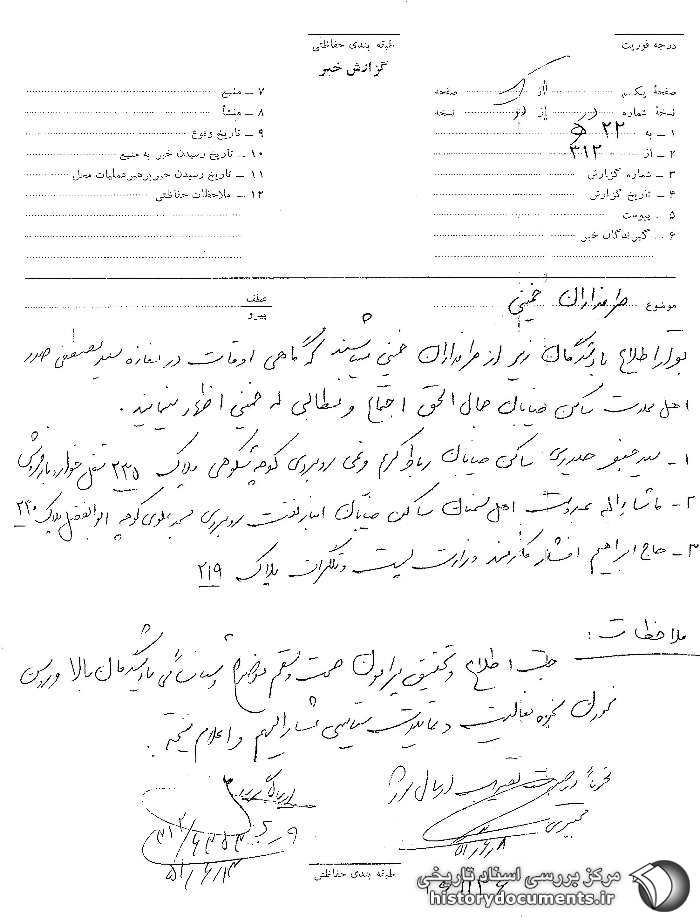 درجه فوریت
طبقه بندی حفاظتی
گزارش خبر
صفحهٔ یکم از صفحه
نسخهٔ شماره از نسخه
۱ – به ۲۲ ﻫ
۲ – از ۳۱۲
۳ – شماره گزارش
۴ – تاریخ گزارش
۵ – پیوست
۶ – گیرندگان خبر
۷ – منبع
۸ – منشأ
۹ – تاریخ وقوع
۱۰ – تاریخ رسیدن خبر به منبع
۱۱ – تاریخ رسیدن خبر برهبر عملیات محل
۱۲ – ملاحظات حفاظتی
موضوع طرفداران خمینی
عطف
پیرو
اطلاع نامبردگان زیر از طرفداران خمینی میباشند که گاهی اوقات در مغازه سید مصطفی صدر
اهل ساکن خیابان اجتماع و مطالبی له خمینی اظهار مینمایند .
۱ – سید جعفر حیدری ساکن خیابان رباط کریم روبروی کوچه پلاک ۲۳۵ شغل خواربار فروشی
۲ – ماشاءاله اهل سمنان ساکن خیابان انبار نفت روبروی مسجد کوچه ابوالفضل پلاک ۲۳۰
۳ – حاج ابراهیم افشار کارمند وزارت پست و تلگراف پلاک ۲۱۹
ملاحظات :
جهت اطلاع و تحقیق پیرامون صحت و سقم موضوع و شناسائی نامبردگان بالا و روشن
نمودن نحوه فعالیت و تمایلات سیاسی مشارالیهم و اعلام نتیجه .
ارسال
۵۱/۶/۸
۵۱/۶/۱۳
طبقه بندی حفاظتی
مرکز بررسی اسناد تاریخی
historydocuments.ir